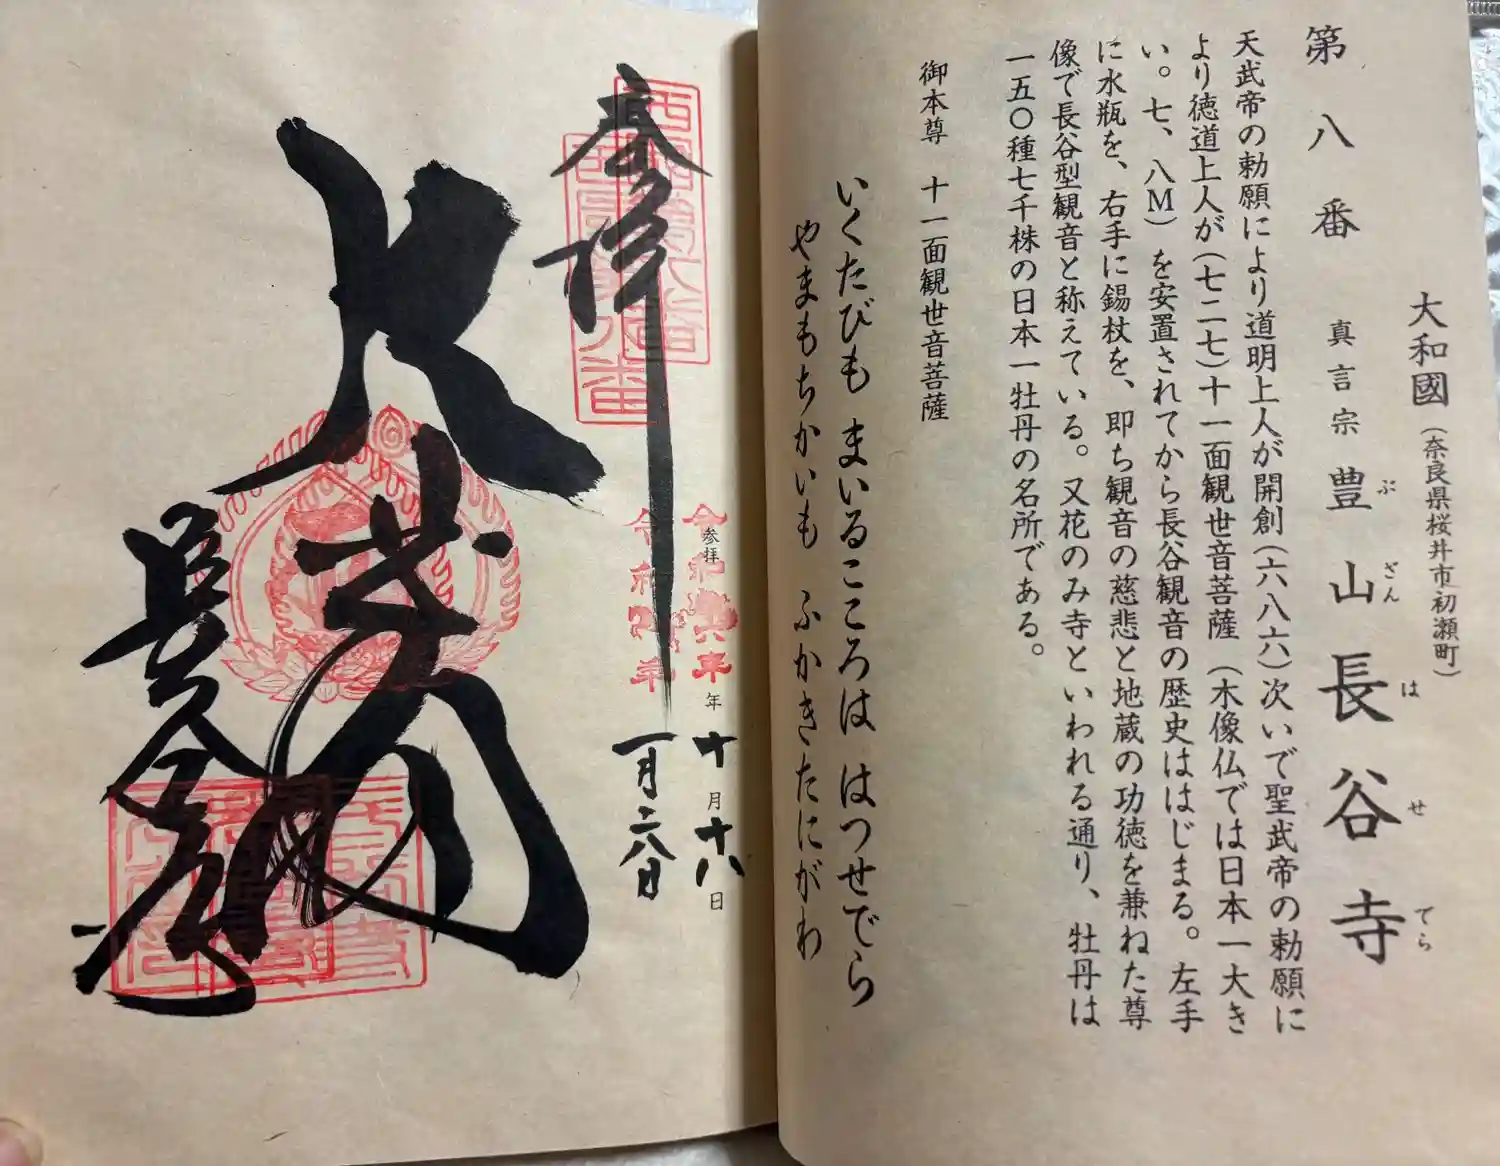 第八番
大和國（奈良県桜井市初瀬町）
真言宗 豊山 長谷寺
ぶざん はせでら
天武帝の勅願により道明上人が開創（六八六）次いで聖武帝の勅願に
より徳道上人が（七二七）十一面観世音菩薩（木像仏では日本一大き
い。七、八M）を安置されてから長谷観音の歴史ははじまる。左手
に水瓶を、右手に錫杖を、即ち観音の慈悲と地蔵の功徳を兼ねた尊
像で長谷型観音と称えている。又花のみ寺といわれる通り、牡丹は
一五〇種七千株の日本一牡丹の名所である。
御本尊 十一面観世音菩薩
いくたびも まいるこころは はつせでら
やまもちかいも ふかきたにがわ
奉拝
西國第八番
参拝
令和六年年十月十八日
一月二八日
大悲閣
長谷寺